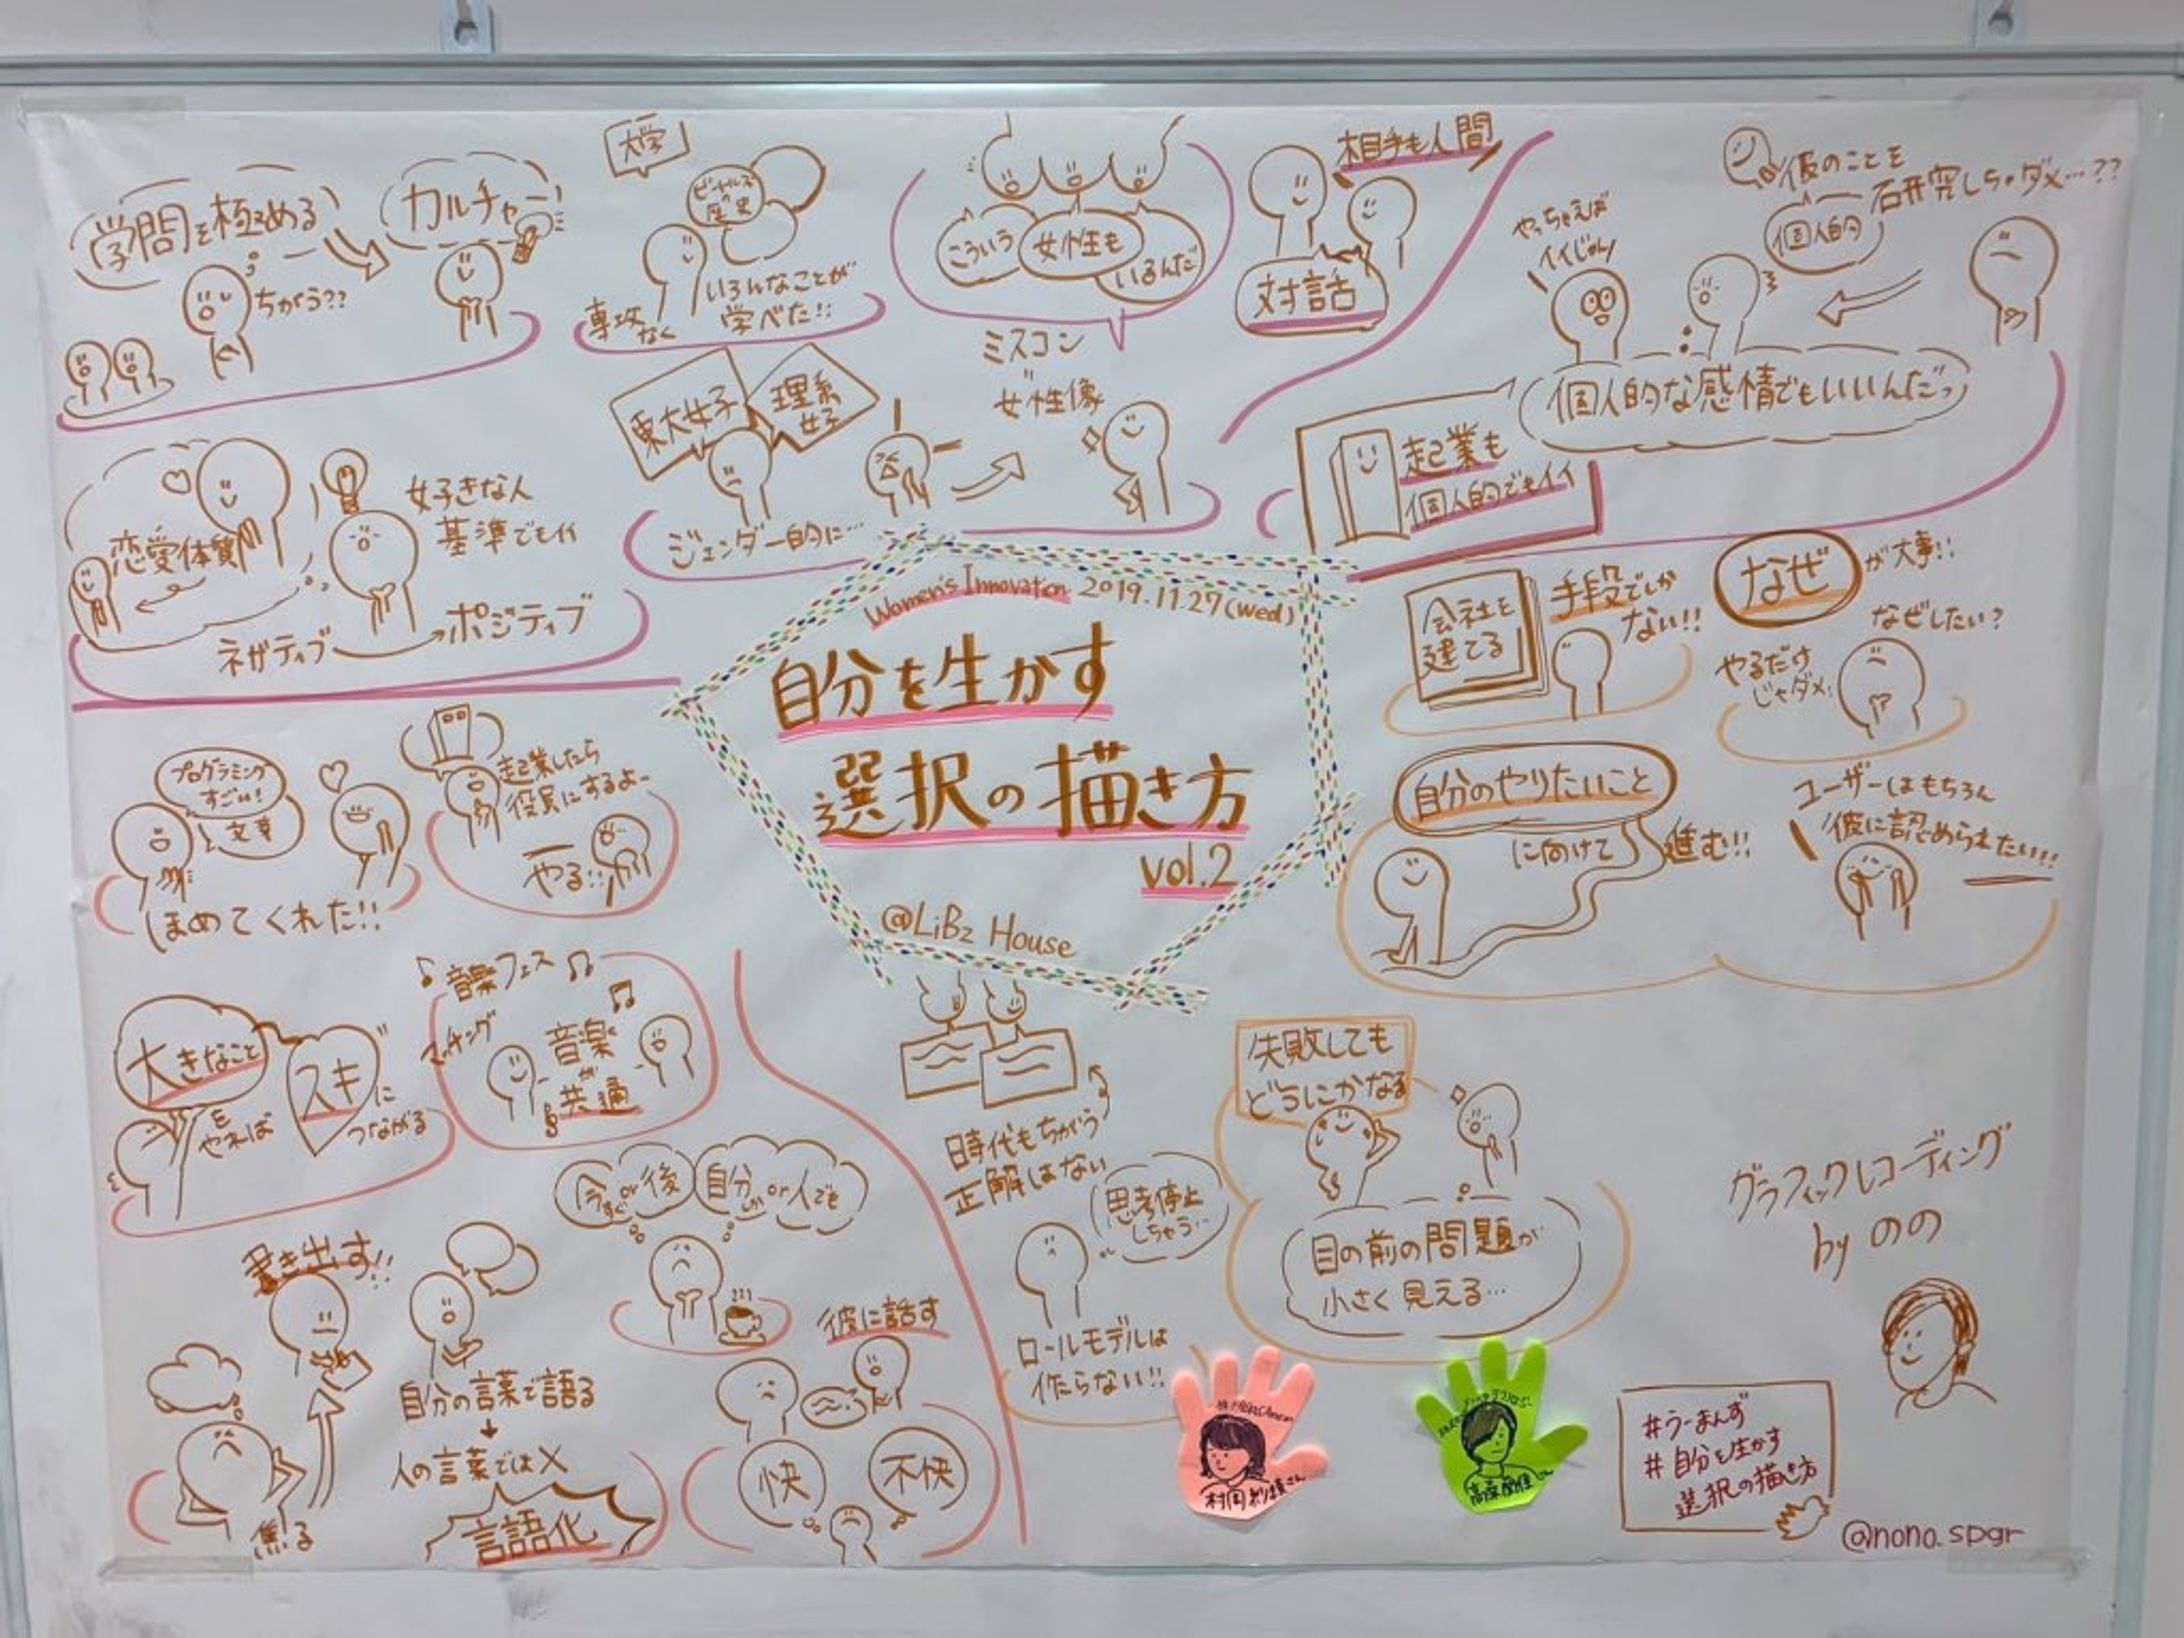 学問を極める
カルチャー
ちがう??
大学
ビートルズの
歴史
専攻
なく
いろんなことが
学べた!!
こういう
女性も
いるんだ
ミスコン
女性像
相手も人間
対話
彼のことを
個人的
研究しちゃダメ…??
やっちゃえば
イイじゃん
個人的な感情でもいいんだっ
起業も
個人的でもイイ
東大女子
理系
女子
ジェンダー的に…
恋愛体質
好きな人
基準でもイイ
ネガティブ
ポジティブ
Women's Innovation 2019.11.27(wed)
自分を生かす
選択の描き方
vol.2
@LiBz House
会社を
建てる
手段でしか
ない!!
なぜ
が大事!!
なぜしたい?
やるだけ
じゃダメ
自分のやりたいこと
に向けて
進む!!
ユーザーはもちろん
彼に認められたい!!
プログラミング
すごい!
文章
ほめてくれた!!
起業したら
役員にするよー
やる!!
大きなこと
を
やれば
スキ
に
つながる
音楽フェス
マッチング
音楽
が
共通
今すぐor後
自分しかor人でも
書き出す!!
焦る
自分の言葉で語る
人の言葉では×
言語化
彼に話す
快
不快
時代もちがう
正解はない
思考停止
しちゃう…
ロールモデルは
作らない!!
失敗しても
どうにかなる
目の前の問題が
小さく見える…
グラフィックレコーディング
by のの
#うーまんず
#自分を生かす
選択の描き方
@nono.spgr